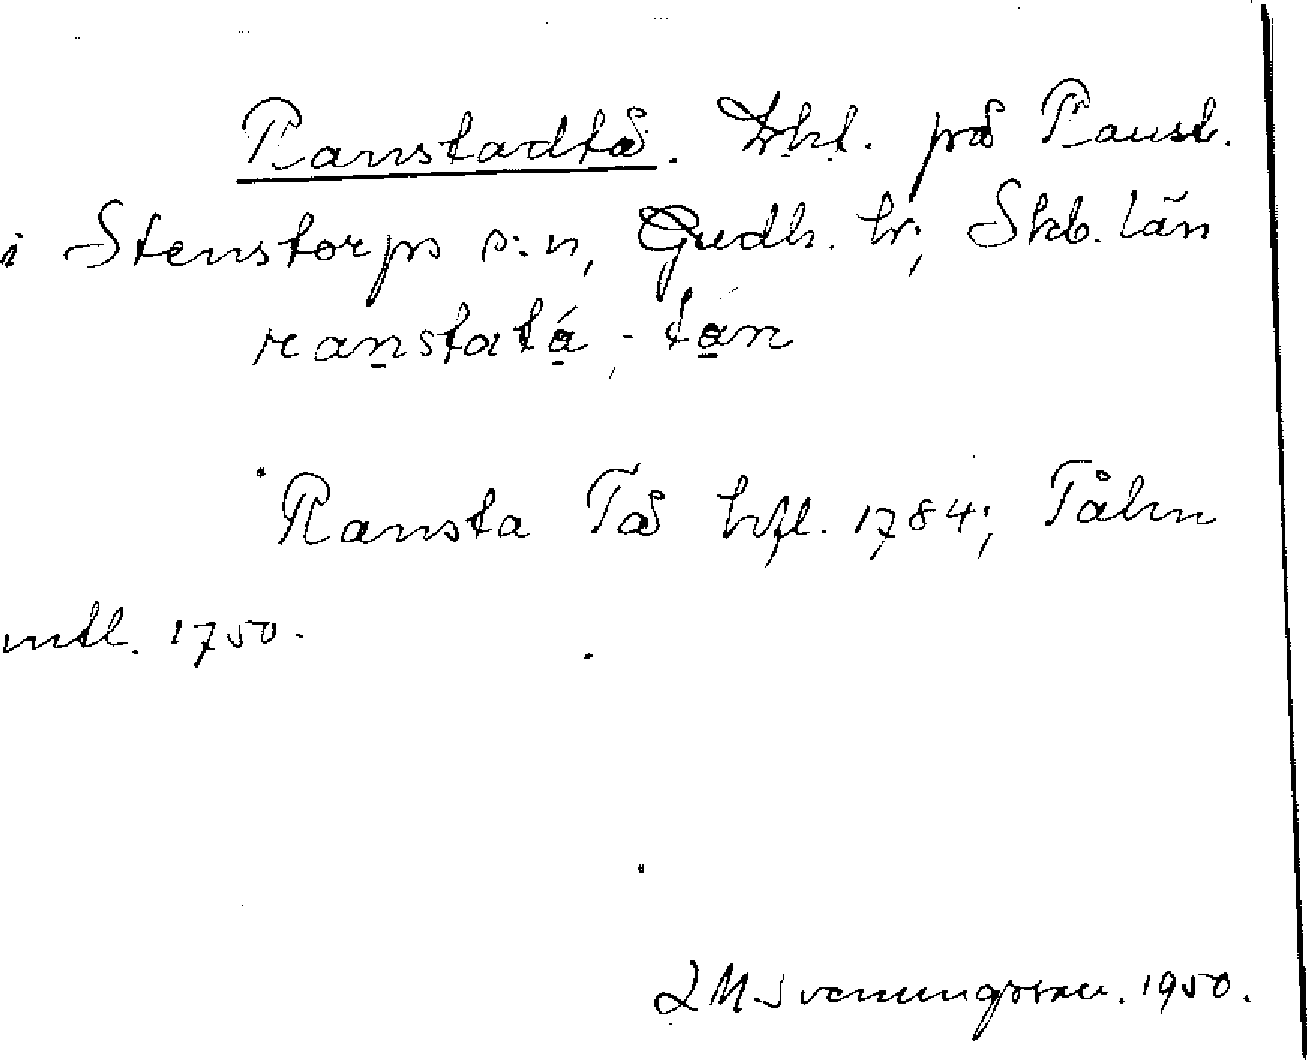 Ranstadtå. Lht. på Ranst.
i Stenstorps s:n, Gudh. hr, Skb. län
ranstatá, -tán
Ransta Tå hfl. 1784; Tåhn
mtl. 1750.
L M Svenungsson. 1950.